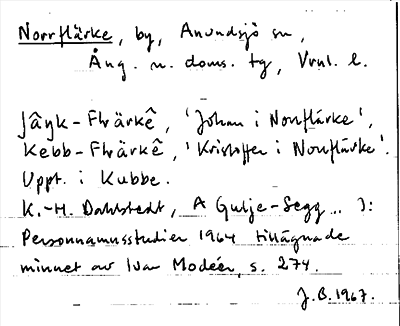 Norrflärke, by, Anundsjö sn,
Ång. n. doms. tg, Vnl. l.
Jâŋk-Flvärkê, 'Johan i Norrflärke',
Kebb-Flvärkê, 'Kristoffer i Norrflärke'.
Uppt. i Kubbe.
K.-H. Dahlstedt, A Gulje-Segg... ):
Personnamnsstudier 1964 tillägnade
minnet av Ivar Modéer, s. 274.
J.B. 1967.